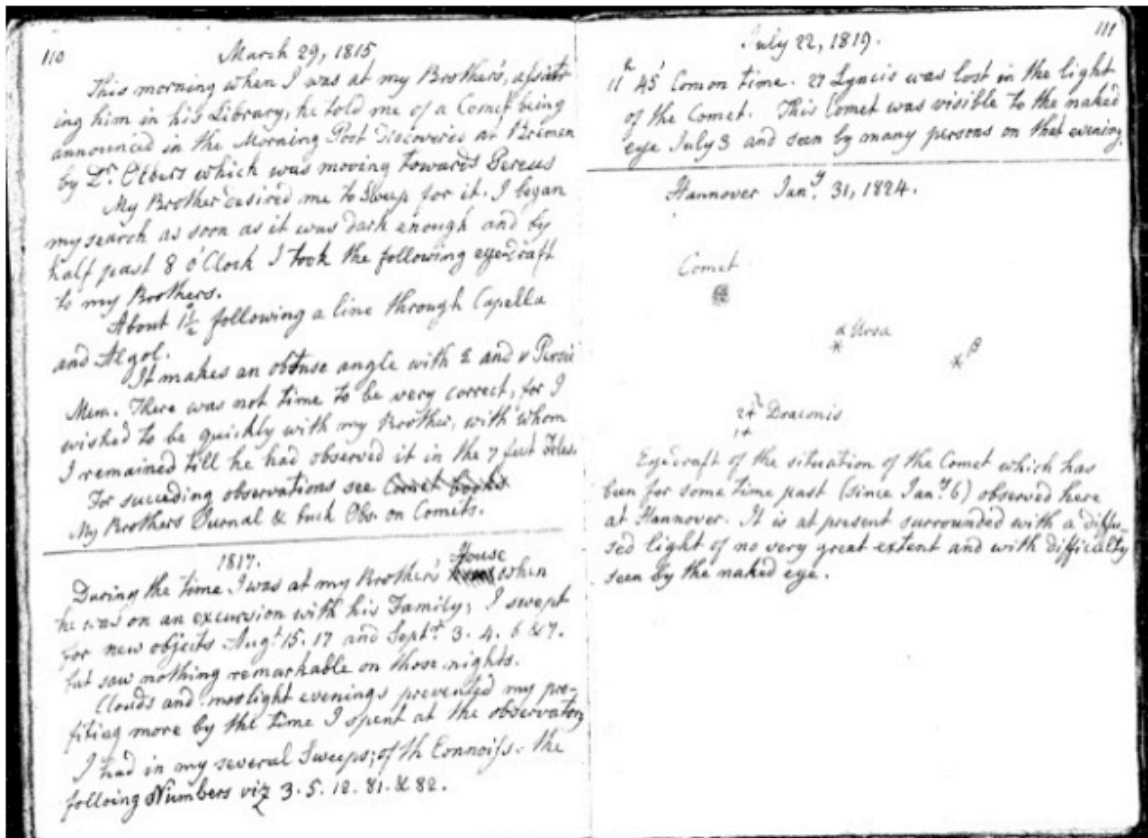 110
March 29, 1815
This morning when I was at my Brother's, assist-
ing him in his Library, he told me of a Comet being
announced in the Morning Post discovered at Bremen
by Dr. Olbers which was moving towards Perseus
My Brother desired me to Sweep for it. I began
my search as soon as it was dark enough and by
half past 8 o'Clock I took the following eyedraft
to my Brothers.
About 1½° following a line through Capella
and Algol.
It makes an obtuse angle with ε and ν Persei
Mem. There was not time to be very correct, for I
wished to be quickly with my Brother, with whom
I remained till he had observed it in the 7 feet Teles.
For succeding observations see Comet books
My Brothers Jurnal & buck Obs. on Comets.
1817.
During the time I was at my Brother's House when
he was on an excursion with his Family, I swept
for new objects Augt. 15. 17 and Septr. 3. 4. 6 & 7.
but saw nothing remarkable on those nights.
Clouds and moolight evenings prevented my pro-
fiting more by the time I spent at the observatory
I had in my several Sweeps; of th Connoiss. the
folloing Numbers viz 3. 5. 12. 81. & 82.
111
July 22, 1819.
11h 45' Comon time. 27 Lyncis was lost in the light
of the Comet. This Comet was visible to the naked
eye July 3 and seen by many persons on that evening.
Hannover Jany. 31, 1824.
Comet
α Ursa
β
Draconis
Eyedraft of the situation of the Comet which has
been for some time past (since Jany. 6) observed here
at Hannover. It is at present surrounded with a diffu-
sed light of no very great extent and with difficulty
seen by the naked eye.